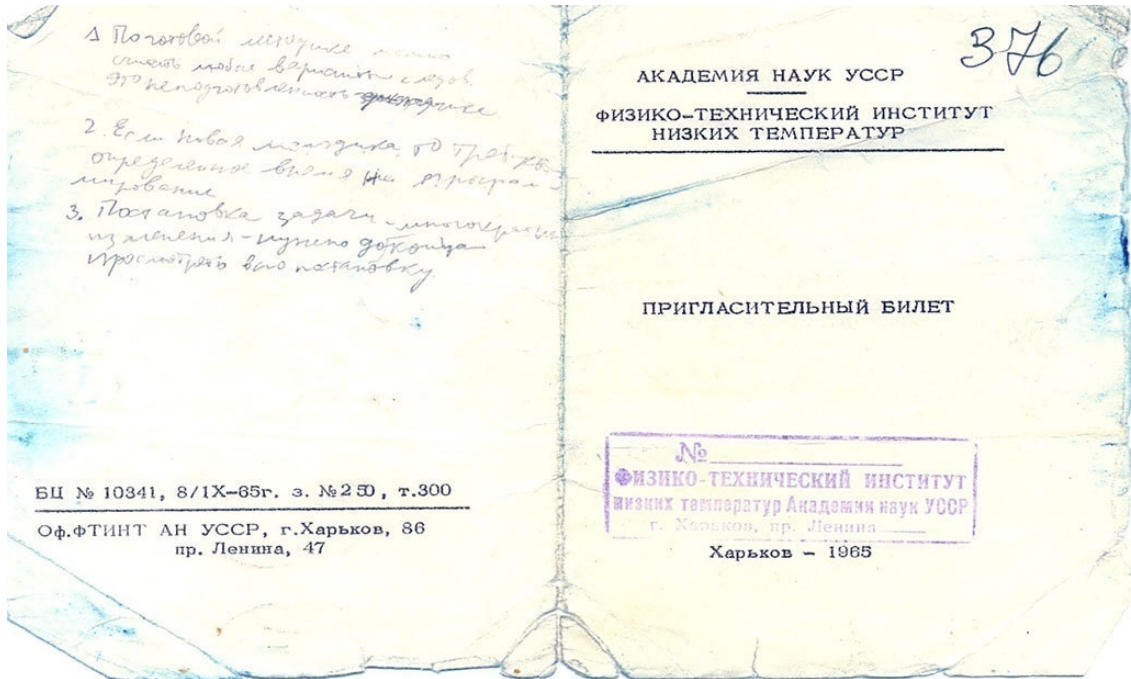 1 По готовой методике можно
считать любые варианты следов.
Это неподготовленность
2. Если новая методика, то
определенное время на програм
мирование
3. Постановка задачи -
изменения - нужно
просмотреть всю постановку.
БЦ № 10341, 8/1X-65г. з. №250, т.300
Оф.ФТИНТ АН УССР, г.Харьков, 86
пр. Ленина, 47
376
АКАДЕМИЯ НАУК УССР
ФИЗИКО-ТЕХНИЧЕСКИЙ ИНСТИТУТ
НИЗКИХ ТЕМПЕРАТУР
ПРИГЛАСИТЕЛЬНЫЙ БИЛЕТ
№
ФИЗИКО-ТЕХНИЧЕСКИЙ ИНСТИТУТ
низких температур Академии наук УССР
г. Харьков, пр. Ленина
Харьков - 1965